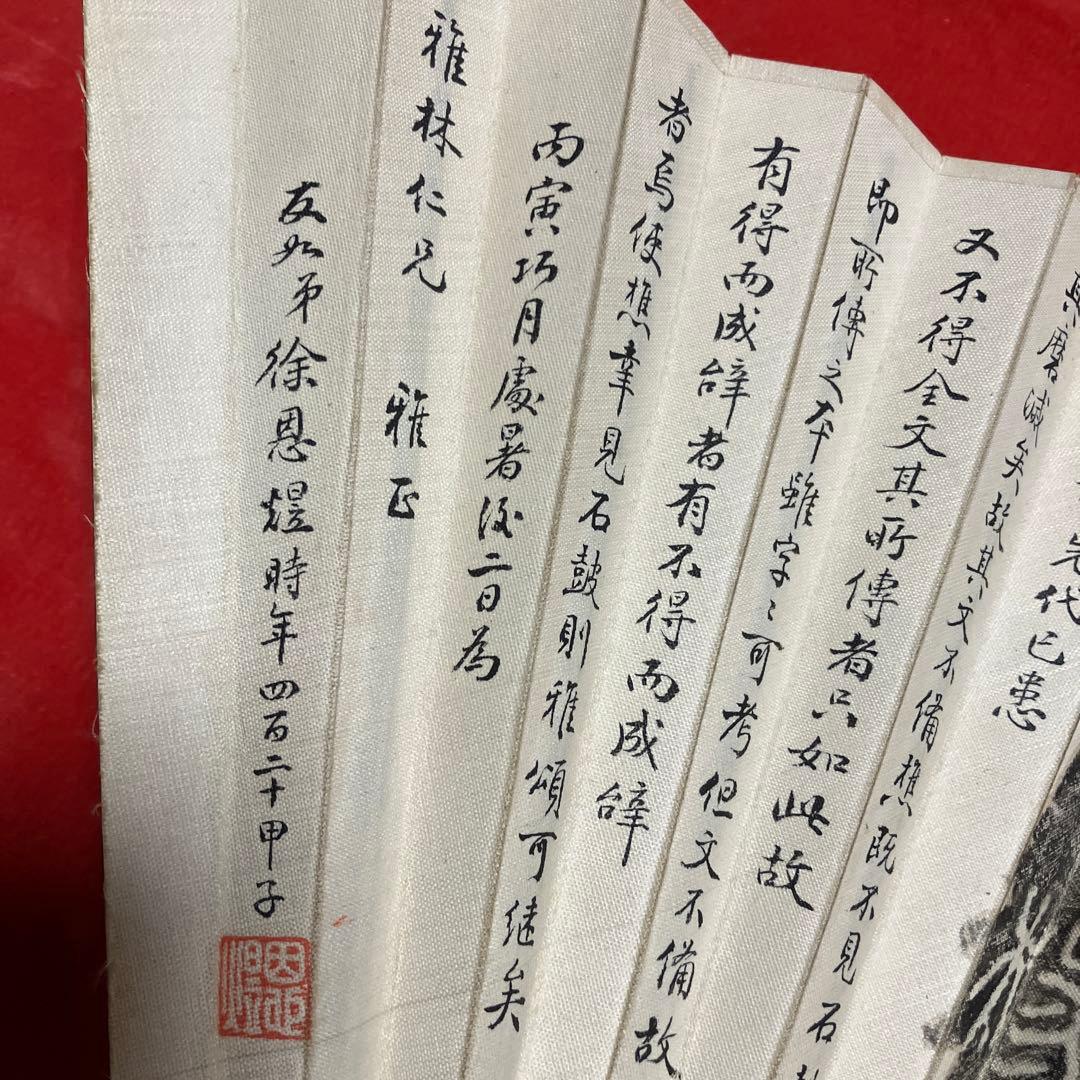 先代已患
磨滅矣故其文不備樵既不見石
又不得全文其所傳者只如此故
即所傳之本雖字〻可考但文不備故
有得而成辭者有不得而成辭
者焉使樵幸見石鼓則雅頌可继矣
丙寅巧月處暑後二日為
雅林仁兄 雅正
友如弟徐恩煜時年四百二十甲子
恩煜